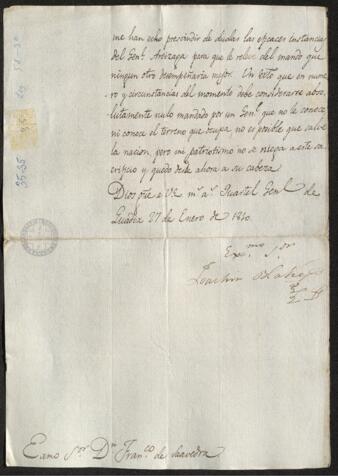 me han echo prescindir de dudas las eficaces instancias
del Genl. Areizaga para que le releve del mando que
ninguno otro desempeñaria mejor. Un Exto que en nume
ro y circunstancias del momento debe considerarse abso
lutamente nulo mandado por un Genl. que no le conoce
ni conoce el terreno que ocupa, no es posible que salve
la nacion, pero mi patriotismo no se niega a este sa
crificio y quedo desde ahora a su cabeza
Dios gue a VE ms. as. Quartel Genl. de
Guadix 27 de Enero de 1810.
Exmo. Sor.
Joachin Blake
Exmo Sor. Dn. Franco de Saavedra